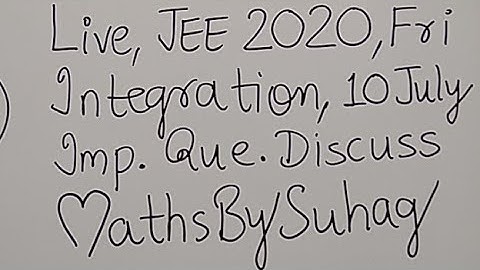 Live, JEE 2020, Fri
Integration, 10 July
Imp. Que. Discuss
MathsBySuhag